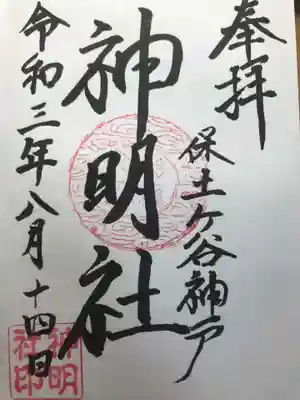 奉拝
保土ヶ谷神戸
神明社
令和三年八月十四日
神明社印